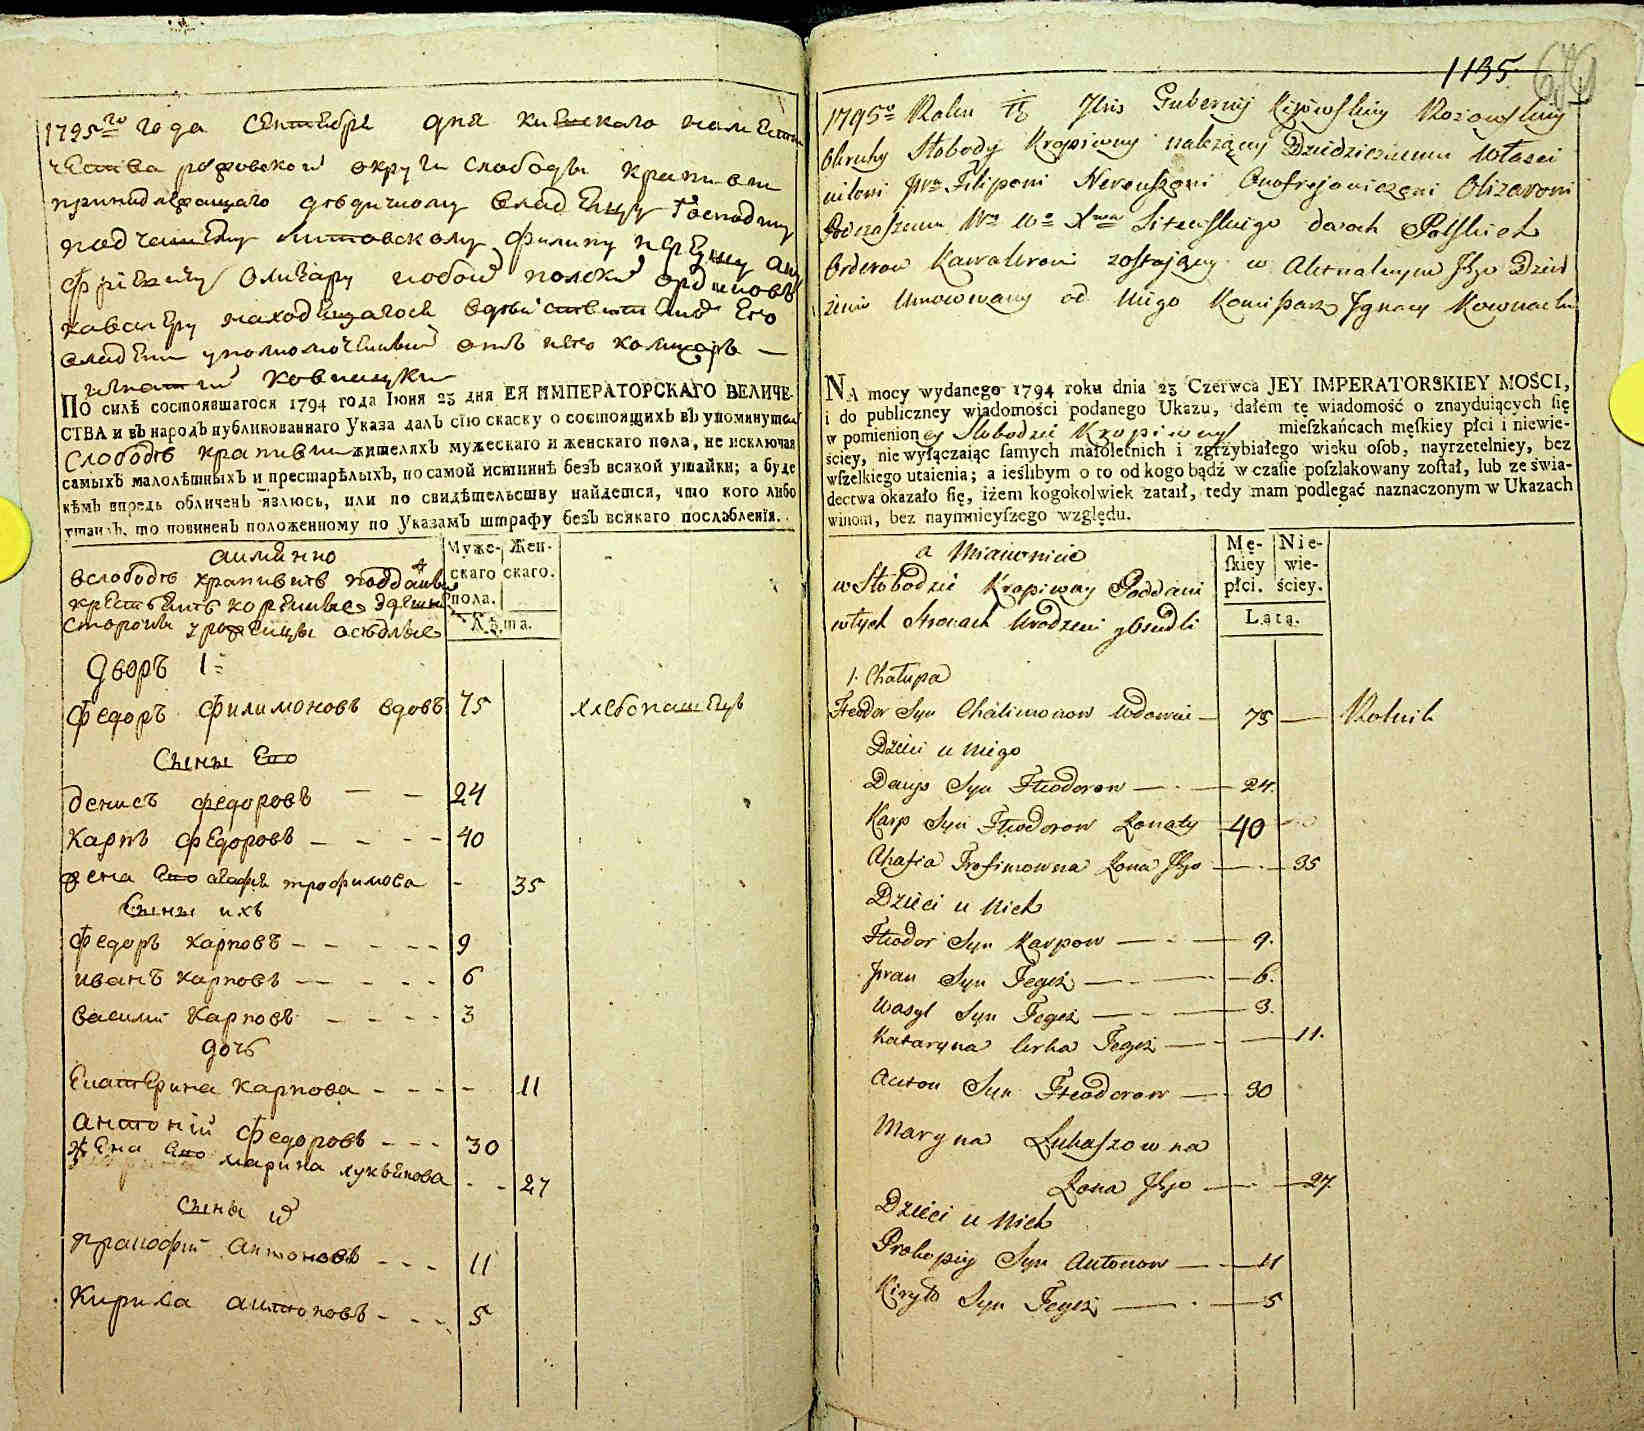 1795го года Сентебря дня киевскаго намест
чества рожовской округи слободы крапивни
принадлежащаго дедичному владельцу Господину
подчашему литовскому Филипу нерему ану
фриевичу Олизару
кавалеру находящагося в действительно его
владении уполномоченный отъ него комисаръ —
игнатий ковнацки
ПО силѣ состоявшагося 1794 года Іюня 23 дня ЕЯ ИМПЕРАТОРСКАГО ВЕЛИЧЕ-
СТВА и въ народъ публикованнаго Указа далъ сію скаску о состоящихъ въ упоминутой
Слободѣ крапивни жителяхъ мужескаго и женскаго пола, не исключая
самыхъ малолѣтныхъ и престарѣлыхъ, по самой истиннѣ безъ всякой утайки; а буде
кѣмъ впредь обличенъ явлюсь, или по свидѣтельству найдется, что кого либо
утаилъ, то повиненъ положенному по Указамъ штрафу безъ всякаго послабленія.
а имянно
вслободѣ крапивнѣ подданые
крестьянѣ коренные здешней
стороны урожепцы оседлые
Муже-скаго пола.
Жен-скаго.
Лѣта.
Дворъ 1й
Федоръ филимоновъ вдовъ 75 хлебопашецъ
Сыны Его
денисъ федоровъ — — 24
Карпъ федоровъ — — — — 40
жена Его агафя трофимова - 35
Сыны ихъ
Федоръ карповъ — — — — — 9
иванъ карповъ — — — — — 6
василий Карповъ — — — — 3
дочь
Екатерина карпова — — — — 11
антоний федоровъ — — — 30
жена Его марина лукьянова - - 27
сыны их
прокофий антоновъ — — — 11
Кирила антоновъ — — — 5
1135
1795o Roku Jbris Gubernij Kijowskiey Rożowskiey
Okruhy Słobody Kropiwny należącey Dziedzicznemu Własci
cielowi Jmo Filipowi Nereuszowi Onofrejowiczowi Olizarowi
Podczaszemu Wo Xo Litewskiego dwoch Polskich
Orderow Kawalerowi zostaiącey w Aktualnym Jego Dzier
żeniu Umocowany od Niego Komisarz Jgnacy Kownacki
NA mocy wydanego 1794 roku dnia 23 Czerwca JEY IMPERATORSKIEY MOSCI,
i do publiczney wiadomości podanego Ukazu, dałem tę wiadomość o znayduiących się
w pomienioney Słobodzie Kropiwney mieszkańcach męskiey płci i niewie-
ściey, nie wyłączaiąc samych małoletnich i zgrzybiałego wieku osob, nayrzetelniey, bez
wszelkiego utaienia; a ieślibym o to od kogo bądź w czasie poszlakowany został, lub ze świa-
dectwa okazało się, iżem kogokolwiek zataił, tedy mam podlegać naznaczonym w Ukazach
winom, bez naymnieyszego względu.
a Mianowicie
w Słobodzie Kropiwney Poddani
w tych Stronach Urodzeni y Osiedli
Mę-skiey płci.
Nie-wie-ściey.
Lątą.
1. Chałupa
Fteodor Syn Chalimonow Wdowiec — 75 — Rolnik
Dzieci u niego
Danys Syn Fteodorow — · — 24.
Karp Syn Fteodorow Żonaty 40
Ahafia Trofimowna Żona Jego — · — 35
Dzieci u Nich
Fteodor Syn Karpow — · — 9.
Jwan Syn Tegoż — · — 6.
Wasyl Syn Tegoż — · — 3.
Kataryna Corka Tegoż — · — 11.
Anton Syn Fteodorow — · 30
Maryna Łukaszowna
Żona Jego — · — 27
Dzieci u Nich
Prokopiy Syn Antonow — · — 11
Kiryło Syn Tegoż — · — 5